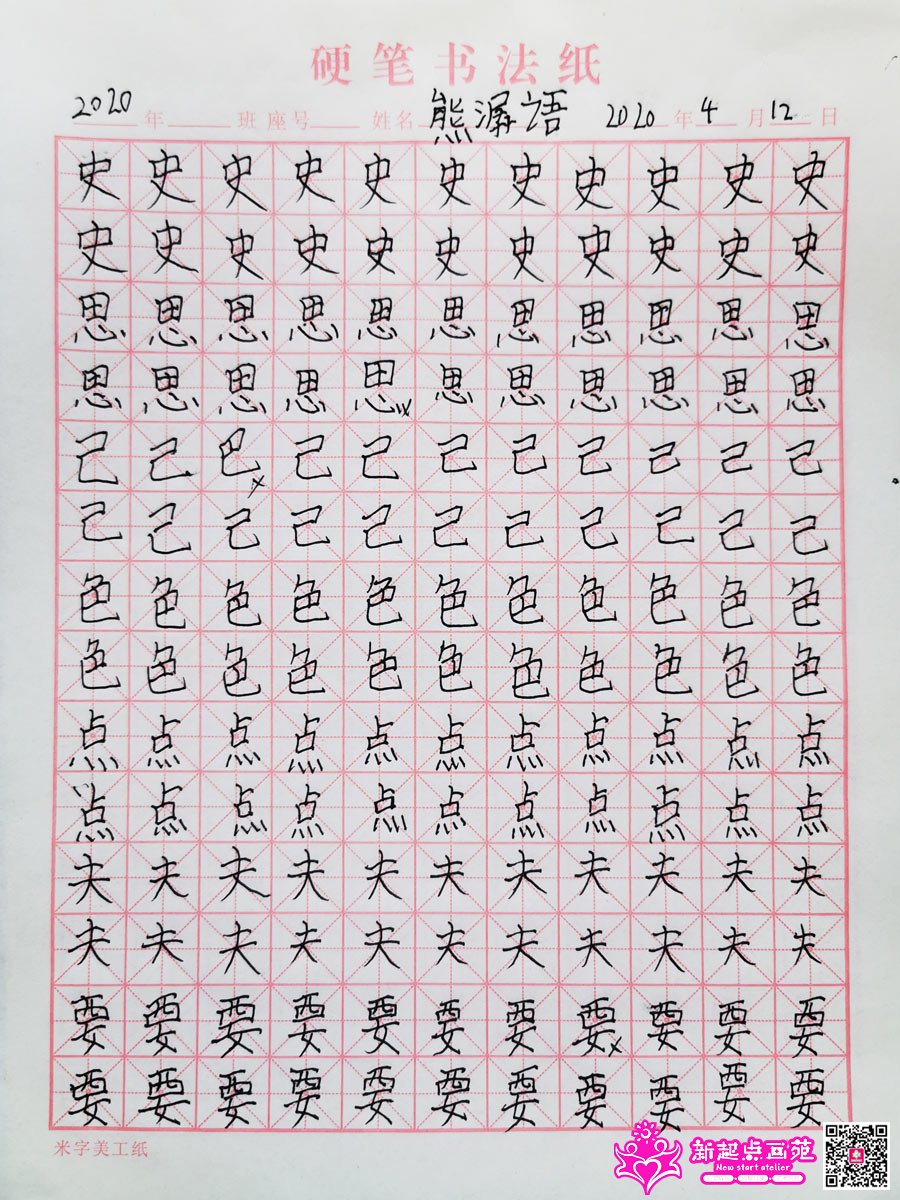 硬笔书法纸
2020年 班 座号 姓名 熊潺语 2020年4月12日
史史史史史史史史史史史
史史史史史史史史史史史
思思思思思思思思思思思
思思思思思思思思思思思
己己巴己己己己己己己己
己己己己己己己己己己己
色色色色色色色色色色色
色色色色色色色色色色色
点点点点点点点点点点点
点点点点点点点点点点点
夫夫夫夫夫夫夫夫夫夫夫
夫夫夫夫夫夫夫夫夫夫夫
要要要要要要要要要要要
要要要要要要要要要要要
米字美工纸
新起点画苑
New start atelier